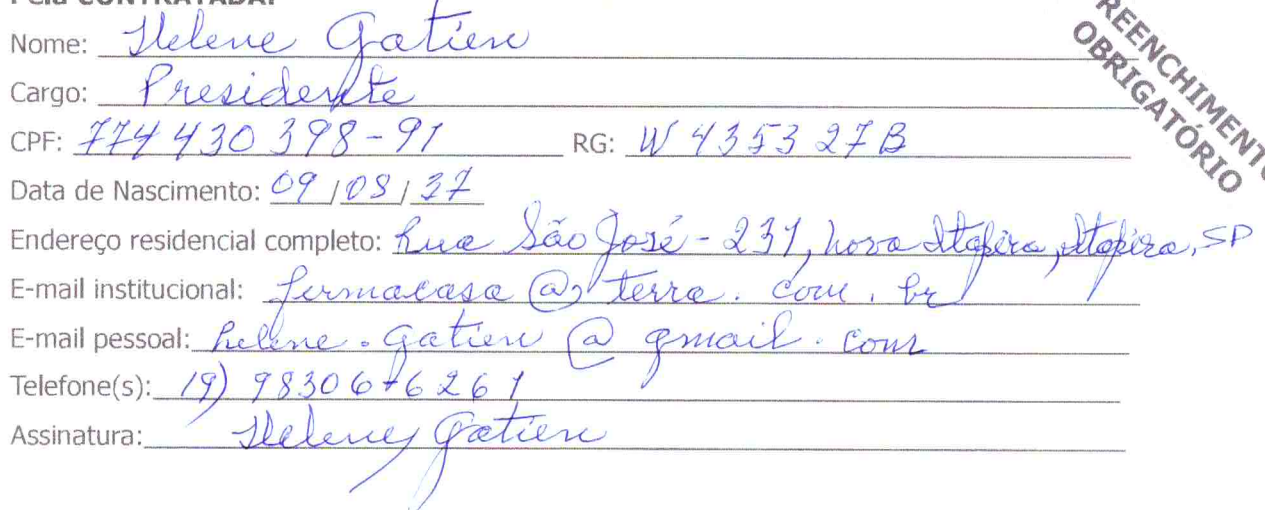 Pela CONTRATADA:
PREENCHIMENTO
OBRIGATÓRIO
Nome: Helene Gatien
Cargo: Presidente
CPF: 774 430 398-91 RG: W 4353 27B
Data de Nascimento: 09/08/37
Endereço residencial completo: Rua São José - 231, Nova Itapira, Itapira, SP
E-mail institucional: fermacasa@terra.com.br
E-mail pessoal: helene.gatien@gmail.com
Telefone(s): 19) 98306-6261
Assinatura: Helene Gatien